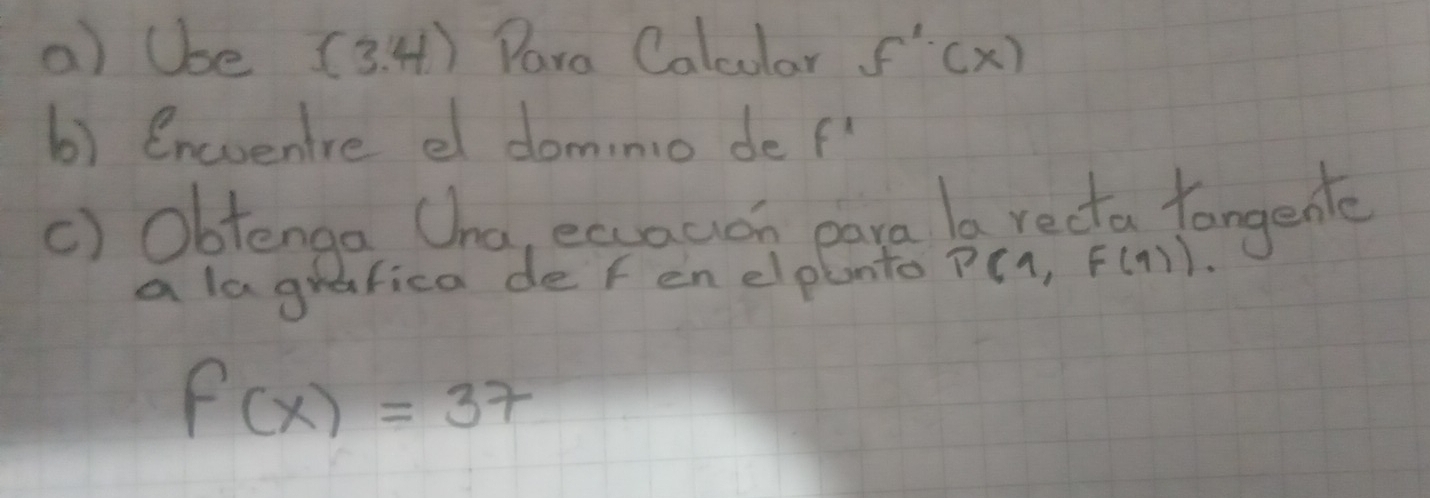 a) Use (3.4) Para Calcular f'(x)
b) Encuentre el dominio de f'
c) Obtenga Una, ecuación para la recta tangente
a la gráfica de f en el punto P(1, F(1)).
f(x) = 37